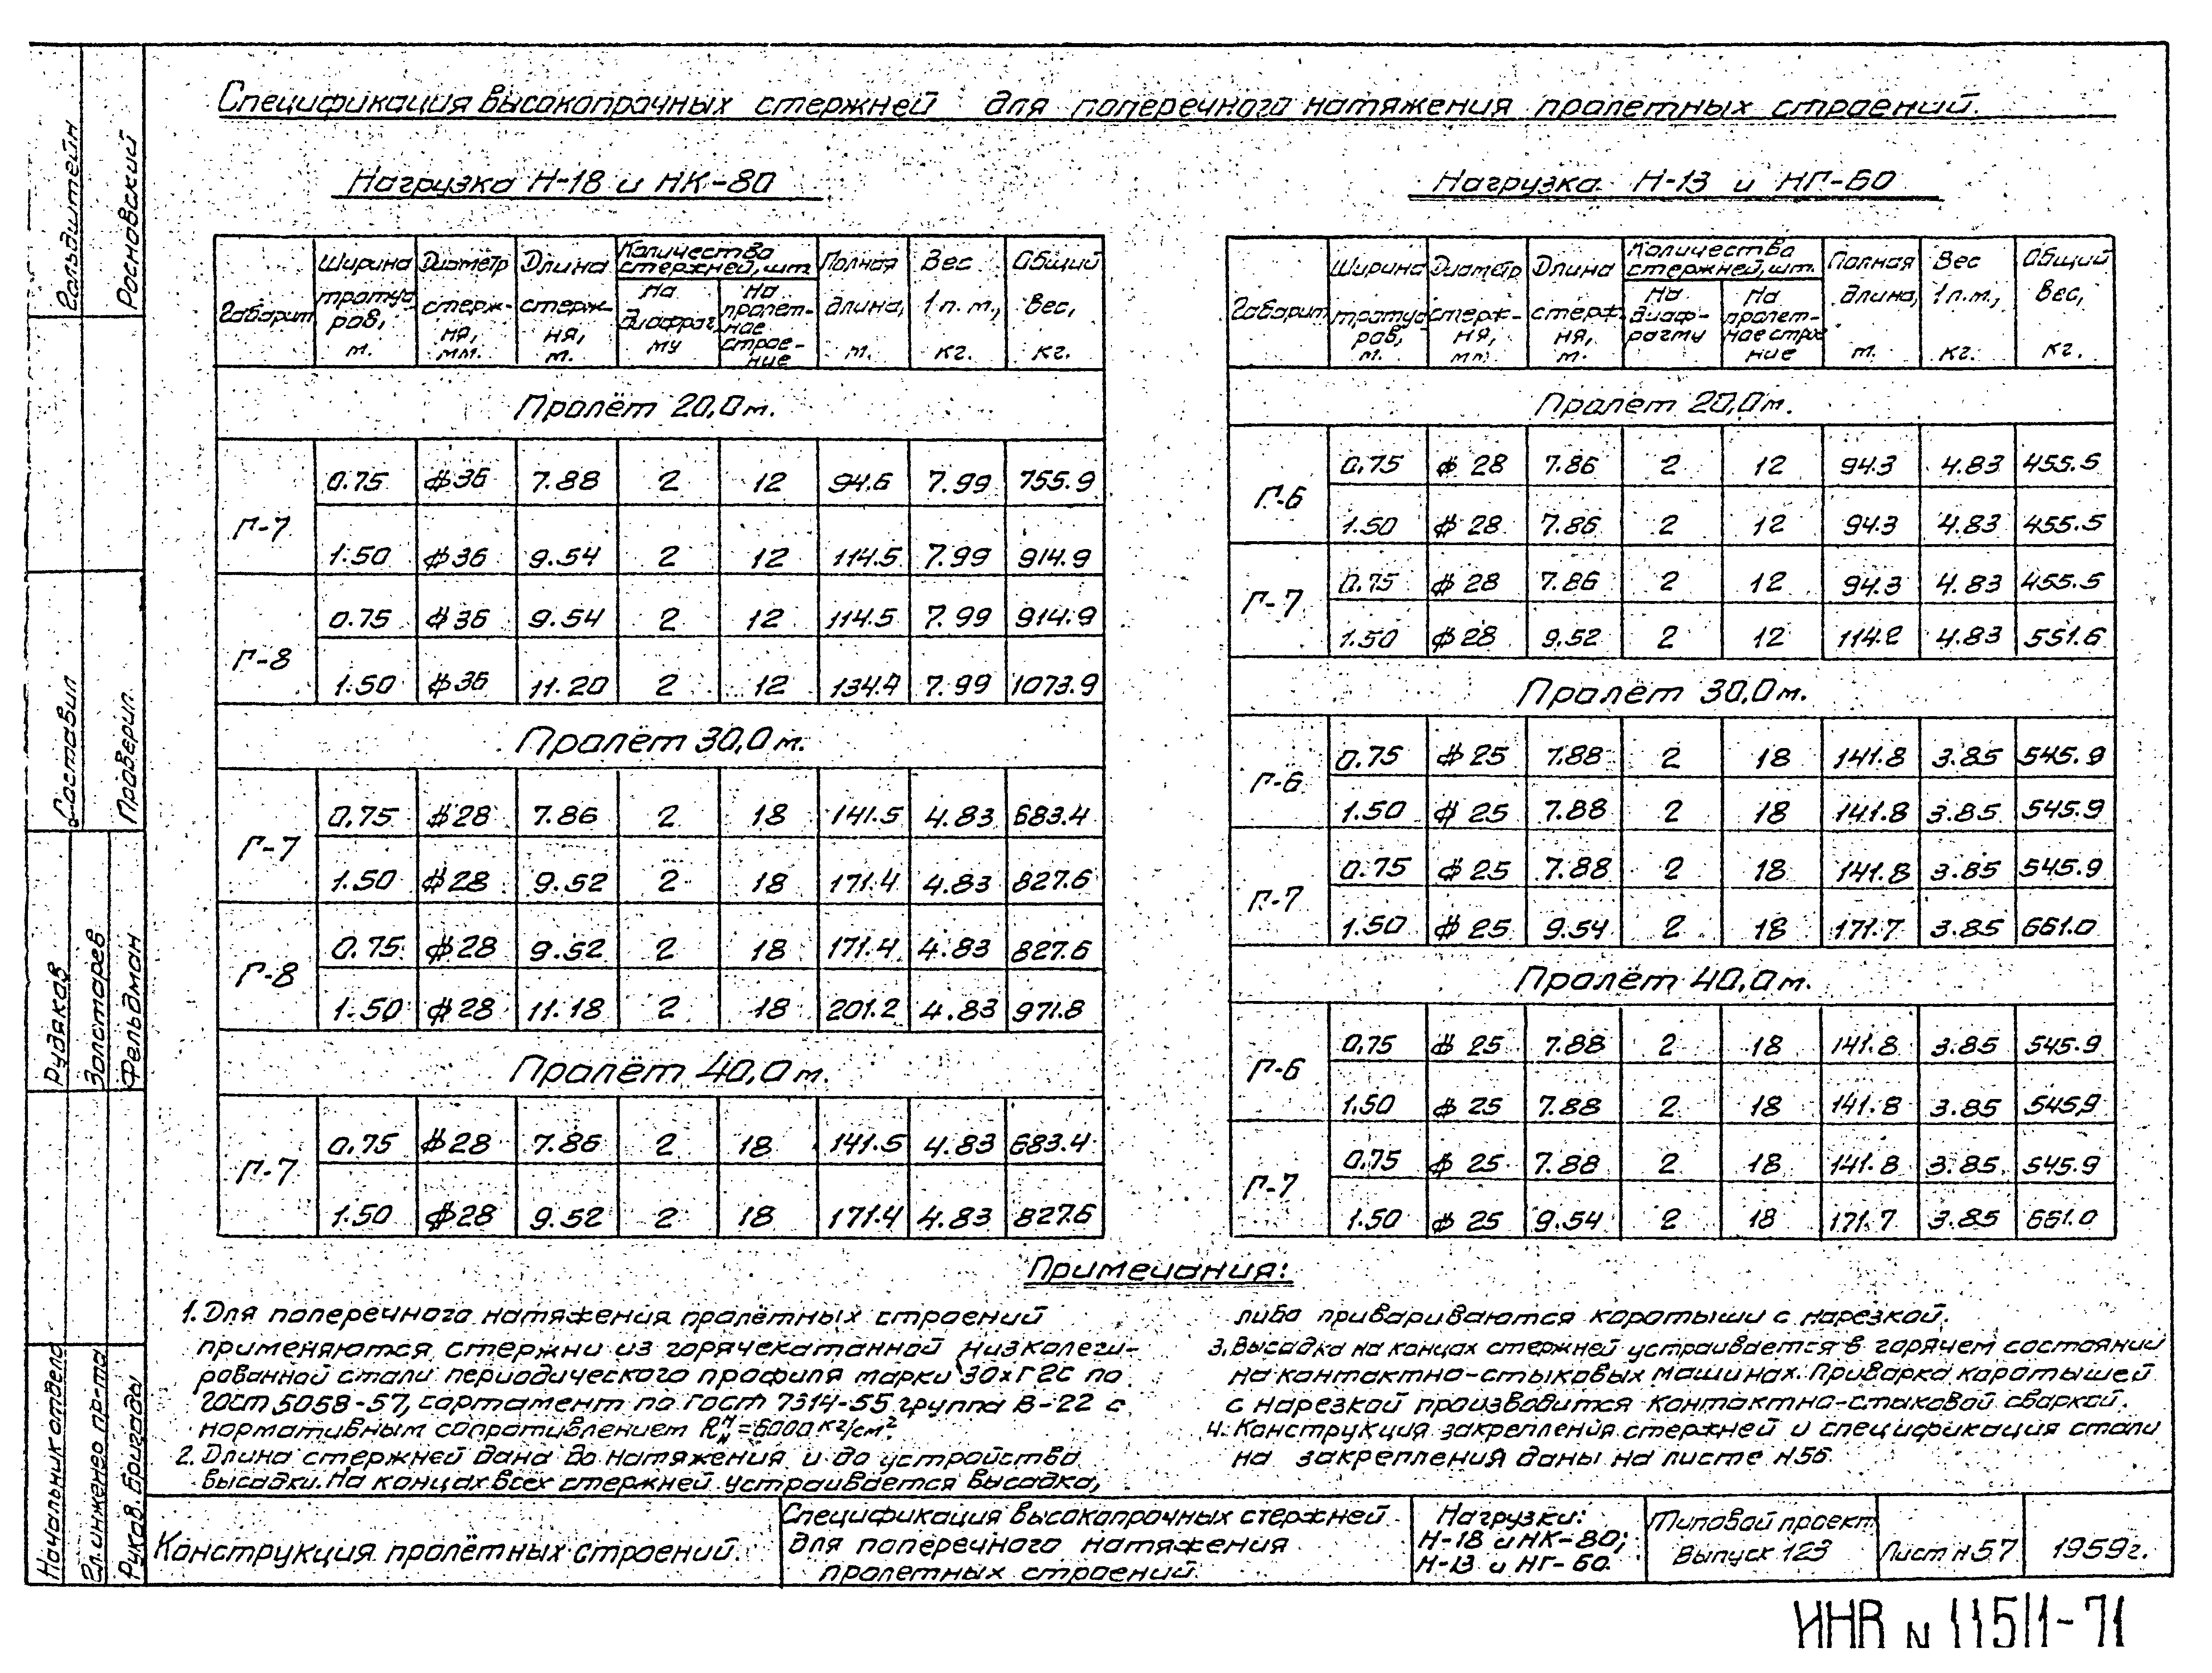 Спецификация высокопрочных стержней для поперечного натяжения пролетных строений.
Нагрузка Н-18 и НК-80
Габарит | Ширина тротуаров, м. | Диаметр стержня, мм. | Длина стержня, м. | Количество стержней, шт. На диафрагму | На пролетное строение | Полная длина, м. | Вес 1 п.м., кг. | Общий вес, кг.
Пролёт 20,0м.
Г-7 0.75 ⌀36 7.88 2 12 94.6 7.99 755.9
1.50 ⌀36 9.54 2 12 114.5 7.99 914.9
Г-8 0.75 ⌀36 9.54 2 12 114.5 7.99 914.9
1.50 ⌀36 11.20 2 12 134.4 7.99 1073.9
Пролёт 30,0м.
Г-7 0.75 ⌀28 7.86 2 18 141.5 4.83 683.4
1.50 ⌀28 9.52 2 18 171.4 4.83 827.6
Г-8 0.75 ⌀28 9.52 2 18 171.4 4.83 827.6
1.50 ⌀28 11.18 2 18 201.2 4.83 971.8
Пролёт 40,0м.
Г-7 0.75 ⌀28 7.86 2 18 141.5 4.83 683.4
1.50 ⌀28 9.52 2 18 171.4 4.83 827.6
Нагрузка Н-13 и НГ-60
Габарит | Ширина тротуаров, м. | Диаметр стержня, мм | Длина стержня, м. | Количество стержней, шт. На диафрагму | На пролетное строение | Полная длина, м. | Вес 1 п.м., кг. | Общий вес, кг.
Пролёт 20,0м.
Г-6 0.75 ⌀28 7.86 2 12 94.3 4.83 455.5
1.50 ⌀28 7.86 2 12 94.3 4.83 455.5
Г-7 0.75 ⌀28 7.86 2 12 94.3 4.83 455.5
1.50 ⌀28 9.52 2 12 114.2 4.83 551.6
Пролёт 30,0м.
Г-6 0.75 ⌀25 7.88 2 18 141.8 3.85 545.9
1.50 ⌀25 7.88 2 18 141.8 3.85 545.9
Г-7 0.75 ⌀25 7.88 2 18 141.8 3.85 545.9
1.50 ⌀25 9.54 2 18 171.7 3.85 661.0
Пролёт 40,0м.
Г-6 0.75 ⌀25 7.88 2 18 141.8 3.85 545.9
1.50 ⌀25 7.88 2 18 141.8 3.85 545.9
Г-7 0.75 ⌀25 7.88 2 18 141.8 3.85 545.9
1.50 ⌀25 9.54 2 18 171.7 3.85 661.0
Примечания:
1. Для поперечного натяжения пролётных строений
применяются стержни из горячекатанной низколеги-
рованной стали периодического профиля марки 30хГ2С по
гост 5058-57, сортамент по гост 7314-55 группа В-22 с
нормативным сопротивлением Rнн=6000 кг/см².
2. Длина стержней дана до натяжения и до устройства
высадки. На концах всех стержней устраивается высадка,
либо привариваются коротыши с нарезкой.
3. Высадка на концах стержней устраивается в горячем состоянии
на контактно-стыковых машинах. Приварка коротышей
с нарезкой производится контактно-стыковой сваркой.
4. Конструкция закрепления стержней и спецификация стали
на закрепления даны на листе н56.
Конструкция пролётных строений.
Спецификация высокопрочных стержней
для поперечного натяжения
пролетных строений.
Нагрузки:
Н-18 и НК-80;
Н-13 и НГ-60.
Типовой проект
Выпуск 123
Лист н57
1959г.
Гольдштейн
Росновский
Составил
Проверил
Рудяков
Золотарев
Фельдман
Начальник отдела
Гл. инженер пр-та
Руков. бригады
ИНВ N 11511-71